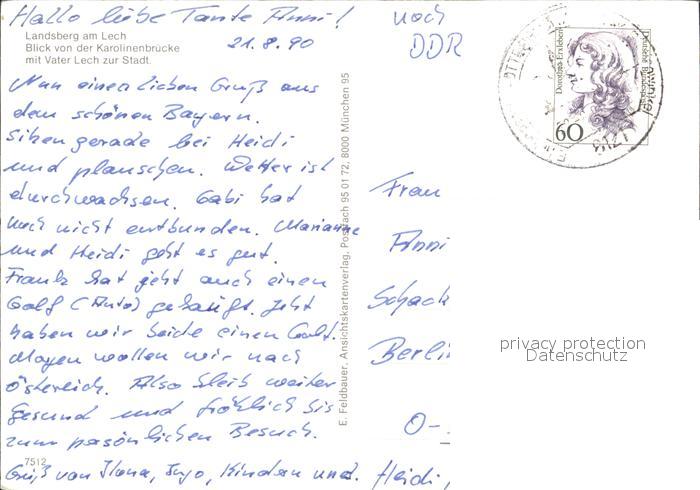 Hallo liebe Tante Anni!
Landsberg am Lech
Blick von der Karolinenbrücke
mit Vater Lech zur Stadt.
21.8.90
Nun einen lieben Gruß aus
dem schönen Bayern.
Sitzen gerade bei Heidi
und planschen. Wetter ist
durchwachsen. Gabi hat
noch nicht entbunden. Marianne
und Heidi geht es gut.
Frank hat jetzt auch einen
Golf (Auto) gekauft. Jetzt
haben wir beide einen Golf.
Morgen wollen wir nach
Österreich. Also bleib weiter
gesund und fröhlich bis
zum persönlichen Besuch.
7512
Gruß von Ilona, Ingo, Kindern und Heidi,
E. Feldbauer, Ansichtskartenverlag, Postfach 95 01 72, 8000 München 95
nach
DDR
Dorothea Erxleben
Deutsche Bundespost
60
Frau
Anni
Schack
Berli
O-
privacy protection
Datenschutz